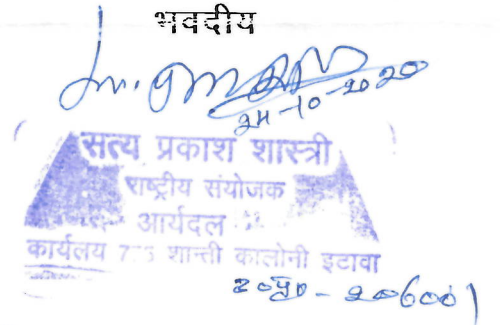 भवदीय
24-10-2020
सत्य प्रकाश शास्त्री
राष्ट्रीय संयोजक
आर्यदल
कार्यलय शान्ती कालोनी इटावा
उ०प्र० - 206001